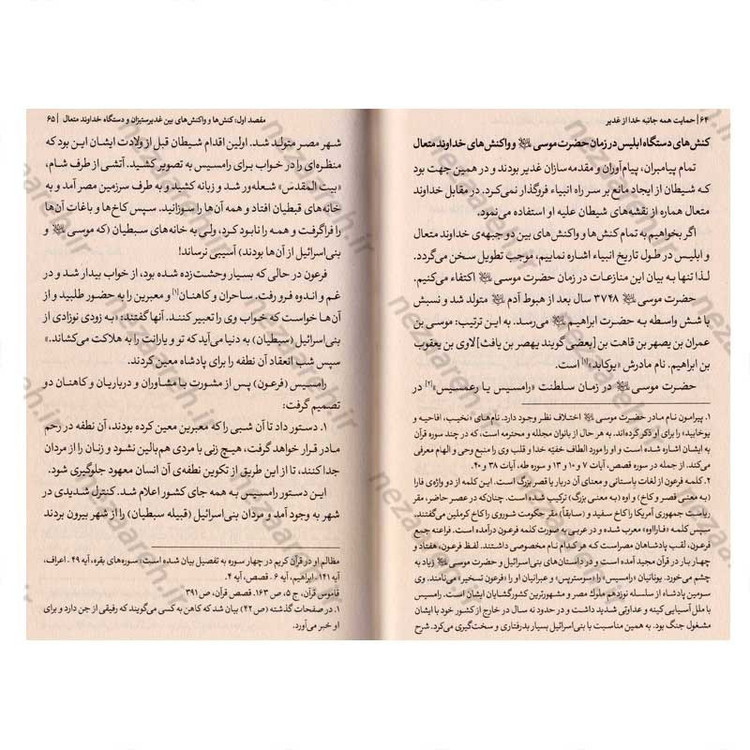 ۶۴ | حمایت همه جانبه خدا از غدیر
کنش‌های دستگاه ابلیس در زمان حضرت موسی و واکنش‌های خداوند متعال
تمام پیامبران، پیام‌آوران و مقدمه‌سازان غدیر بودند و در همین جهت بود
که شیطان از ایجاد مانع بر سر راه انبیاء فروگذار نمی‌کرد. در مقابل خداوند
متعال هماره از نقشه‌های شیطان علیه او استفاده می‌نمود.
اگر بخواهیم به تمام کنش‌ها و واکنش‌های بین دو جبهه‌ی خداوند متعال
و ابلیس در طول تاریخ انبیاء اشاره نماییم، موجب تطویل سخن می‌گردد.
لذا تنها به بیان این منازعات در زمان حضرت موسی اکتفاء می‌کنیم.
حضرت موسی ۳۷۴۸ سال بعد از هبوط آدم متولد شد و نسبش
با شش واسطه به حضرت ابراهیم می‌رسد. به این ترتیب: موسی بن
عمران بن یصهر بن قاهت بن [بعضی گویند یهصر بن یافث] لاوی بن یعقوب
بن ابراهیم. نام مادرش «یوکابد»[۱] است.
حضرت موسی در زمان سلطنت «رامسیس یا رعمسیس»[۲] در
۱. پیرامون نام مادر حضرت موسی اختلاف نظر وجود دارد. نام‌های «نخیب، افاحیه و
یوخابید» را برای او ذکر کرده‌اند. به هر حال از بانوان مجلله و محترمه است، که در چند سوره قرآن
به ایشان اشاره شده است و او را مورد الطاف خدا و قلب وی را منبع وحی و الهام معرفی
می‌کند. از جمله در سوره قصص، آیات ۷ و ۱۰ و ۱۳ و سوره طه، آیات ۳۸ و ۴۰.
۲. کلمه فرعون از لغات باستانی و معنای آن دربار یا قصر بزرگ است. این کلمه از دو واژه‌ی فارا
(به معنی قصر و کاخ) و اوه (به معنی بزرگ) ترکیب شده است. چنان‌که در عصر حاضر، مقر
ریاست جمهوری آمریکا را کاخ سفید و (سابقاً) مقر حکومت شوروی را کاخ کرملین می‌گفتند،
سپس کلمه «فارااوه» معرب شده و در عربی به صورت کلمه فرعون درآمده است. فراعنه جمع
فرعون، لقب پادشاهان مصر است که هر کدام نام مخصوصی داشتند. لفظ فرعون، هفتاد و
چهار بار در قرآن مجید آمده است و در داستان‌های بنی‌اسرائیل و حضرت موسی زیاد به
چشم می‌خورد. یونانیان «رامسیس» را «سوستریس» و عبرانیان او را «فرعون تسخیر» می‌نامند. وی
سومین پادشاه از سلسله نوزدهم ملوک مصر و مشهورترین کشورگشایان ایشان است. رامسیس
با ملل آسیایی کینه و عداوتی شدید داشت و در حدود نه سال در خارج از کشور خود با ایشان
مشغول جنگ بود. به همین مناسبت با بنی‌اسرائیل بسیار بدرفتاری و سخت‌گیری می‌کرد. شرح
مقصد اول: کنش‌ها و واکنش‌های بین غدیرستیزان و دستگاه خداوند متعال | ۶۵
شهر مصر متولد شد. اولین اقدام شیطان قبل از ولادت ایشان این بود که
منظره‌ای را در خواب برای رامسیس به تصویر کشید. آتشی از طرف شام،
«بیت المقدس» شعله‌ور شد و زبانه کشید و به طرف سرزمین مصر آمد و به
خانه‌های قبطیان افتاد و همه آن‌ها را سوزانید. سپس کاخ‌ها و باغات آن‌ها
را فراگرفت و همه را نابود کرد، ولی به خانه‌های سبطیان (که موسی و
بنی‌اسرائیل از آن‌ها بودند) آسیبی نرساند!
فرعون در حالی که بسیار وحشت‌زده شده بود، از خواب بیدار شد و در
غم و اندوه فرو رفت. ساحران و کاهنان[۱] و معبرین را به حضور طلبید و از
آنها خواست که خواب وی را تعبیر کنند. آنها گفتند: «به زودی نوزادی از
بنی‌اسرائیل (سبطیان) به دنیا می‌آید که تو و یارانت را به هلاکت می‌کشاند.»
سپس شب انعقاد آن نطفه را برای پادشاه معین کردند.
رامسیس (فرعون) پس از مشورت با مشاوران و درباریان و کاهنان دو
تصمیم گرفت:
۱. دستور داد تا آن شبی را که معبرین معین کرده بودند، آن نطفه در رحم
مادر قرار خواهد گرفت، هیچ زنی با مردی هم‌بالین نشود و زنان را از مردان
جدا کنند، تا از این طریق از تکوین نطفه‌ی آن انسان معهود جلوگیری شود.
این دستور رامسیس به همه جای کشور اعلام شد. کنترل شدیدی در
شهر به وجود آمد و مردان بنی‌اسرائیل (قبیله سبطیان) را از شهر بیرون بردند
مظالم او در قرآن کریم در چهار سوره به تفصیل بیان شده است: سوره‌های بقره، آیه ۴۹ - اعراف،
آیه ۱۴۱ - ابراهیم، آیه ۶ - قصص، آیه ۴.
قاموس قرآن، ج ۵، ص ۱۶۳. قصص قرآن، ص ۳۹۱
۱. در صفحات گذشته (ص ۲۲) بیان شد که کاهن به کسی می‌گویند که رفیقی از جن دارد و برای
او خبر می‌آورد.
nezzareh.ir